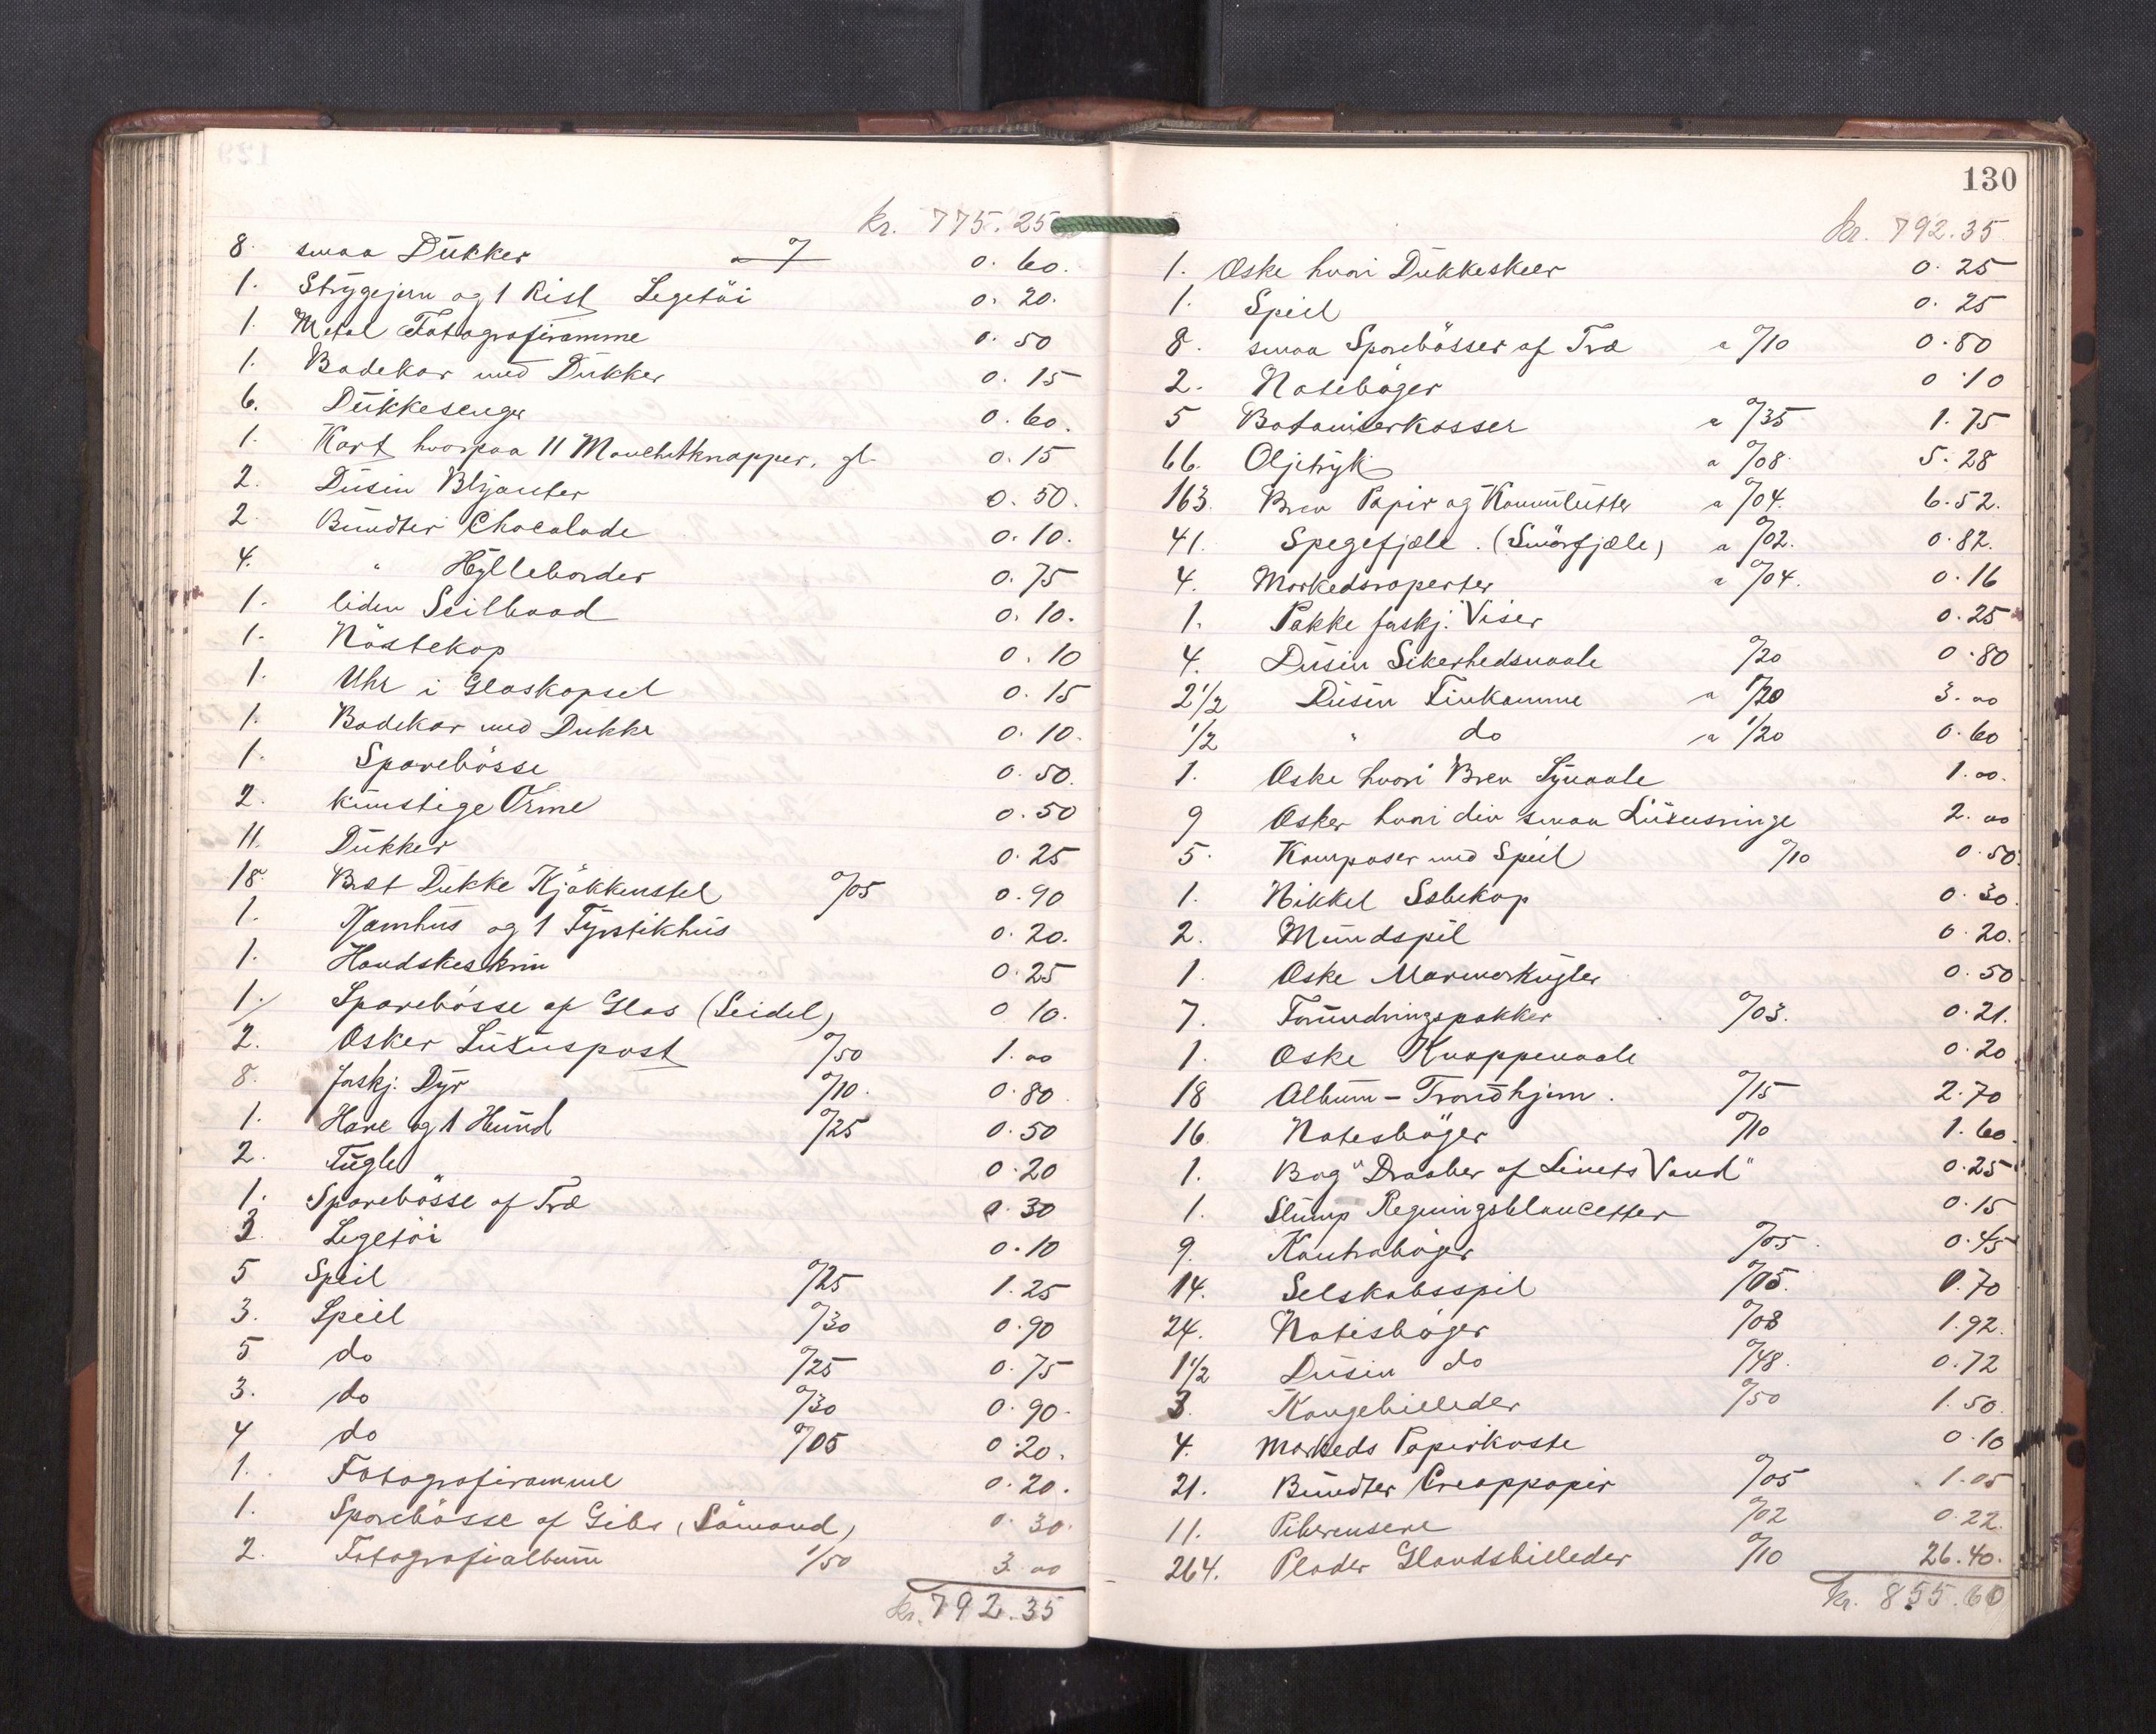 kr. 775.25
8. smaa Dükker 0.60.
1. Strygejern og 1 Rist Legetöi 0.20.
1. Metal Fotografiramme 0.50
1. Badekar med Dükker 0.15
6. Dükkesenge 0.60.
1. Kart hvorpaa 11 Manchetknapper, gl. 0.15
2. Düsin Blyanter 0.50.
2. Bündter Chocolade 0.10.
4. " Hylleborder 0.75
1. liden Seilbaad 0.10.
1. Nöstekop 0.10
1. Uhr i Glaskapsel 0.15
1. Badekar med Dukke 0.10.
1. Sparebösse 0.50.
2. künstige Orme 0.50
11. Dükker 0.25
18. Bret Dukke Kjökkenstel 0/05 0.90
1. og 1 Fyrstikhüs 0.20.
1. Handskeskrin 0.25
1. Sparebösse af Glas (Seidel) 0 10.
2. Osker Luxuspost 0/50 1.00
8. forskj. Dyr 0/10. 0.80
1. Hare og 1 Hund 0/25 0.50
2. Fugle 0.20
1. Sparebösse af Træ 0.30
3. Legetöi 0.10
5 Speil 0/25 1.25
3. Speil 0/30 0.90
5 do 0/25 0.75
3. do 0/30 0.90.
4 do 0/05 0.20.
1. Fotografiramme 0.20.
1. Sparebösse af Gibs, (Sömand) 0.30.
2. Fotografialbum 1/50 3.00
kr. 792.35
130
kr. 792.35
1. Oske hvori Dükkeskeer 0.25
1. Speil 0.25
8. smaa Sparebösser af Træ a 0/10 0.80
2. Notisböger 0.10
5 Botaniserkasser a 0/35 1.75
66. Oljetryk a 0/08. 5.28
163. Brev Papir og Konvolutter a 0/04. 6.52.
41. Spegefjæle. (Smörfjæle) a 0/02. 0.82.
4. a 0/04. 0.16
1. Pakke forskj. Viser 0.25
4. Düsin Sikerhedsnaale 0/20 0.80
2 1/2 Düsin Finkamme a 1/20 3.00
1/2 " do a 1/20 0.60
1. Oske hvori Brev Synaale 1.00.
9 Osker hvori div smaa Luxusringe 2.00
5. Kompasser med Speil 0/10 0.50.
1. Nikkel Sæbekop 0.30.
2. Mundspil 0.20.
1. Oske Marmorkugler 0.50
7. Forundringspakker 0/03. 0.21.
1. Oske Knappenaale 0.20
18 Album - Trondhjem. 0/15 2.70
16. Notesböger 0/10 1.60.
1. Bog "Draaber af Livets Vand" 0.25
1. Slump Regningsblancetter 0.15
9. Kontraböger 0/05. 0.45
14. Selskabsspil 0/05. 0.70
24. Notisböger 0/08 1.92.
1 1/2 Düsin do 0/48. 0.72
3. Kongebilleder 0/50 1.50.
4. Markeds Papirkoste 0.10
21. Bündter Creappapir 0/05 1.05
11. Piberensere 0/02 0.22.
264. Plader Glandsbilleder 0/10 26.40.
kr. 855.60